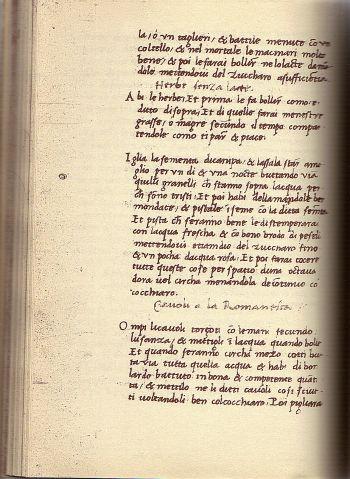 la, o un taglieri, & battile menute co un
coltello, & nel mortale le macinari molto
bene, & poi le farai boller ne lo lacte da man
dole mettendovi del Zuccharo a sufficientia
Herbe senza lacte
A bi le herbe, Et prima le fa boller como e
duto di sopra, Et di quelle farai menestre
grasse, o magre secundo il tempo compar
tendole como ti par & piace.
I glia la somenta di canepa, & lassala star a mo
glio per un di & una nocte buttando via
quilli granelli ch stanno sopra lacqua per
ch sono tristi. Et poi habi delle mandole ben
mondate, & pistale insieme co la ditta somenta
Et pista ch seranno bene le distemperarai
con lacqua frescha, & co bono brodo di peselli
mettendovi etiamdio del zuccharo fino
& un pocha dacqua rosa. Et poi farai cocere
tutte queste cose per spatio duna octava
dora vel circha menandola de continuo co
cocchiaro.
Cavoli a la Romanesca
O mpi li cavoli torzoti co le mani secundo
lusanza, & mettoli i lacqua quando bolle
Et quando seranno circha mezo cotti but
ta via tutta quella acqua & habi di bon
lardo battuto in bona & competente quati
ta, & mettilo ne li ditti cavoli cosi sciut
ti voltandoli ben col cocchiaro. Poi pigliarai